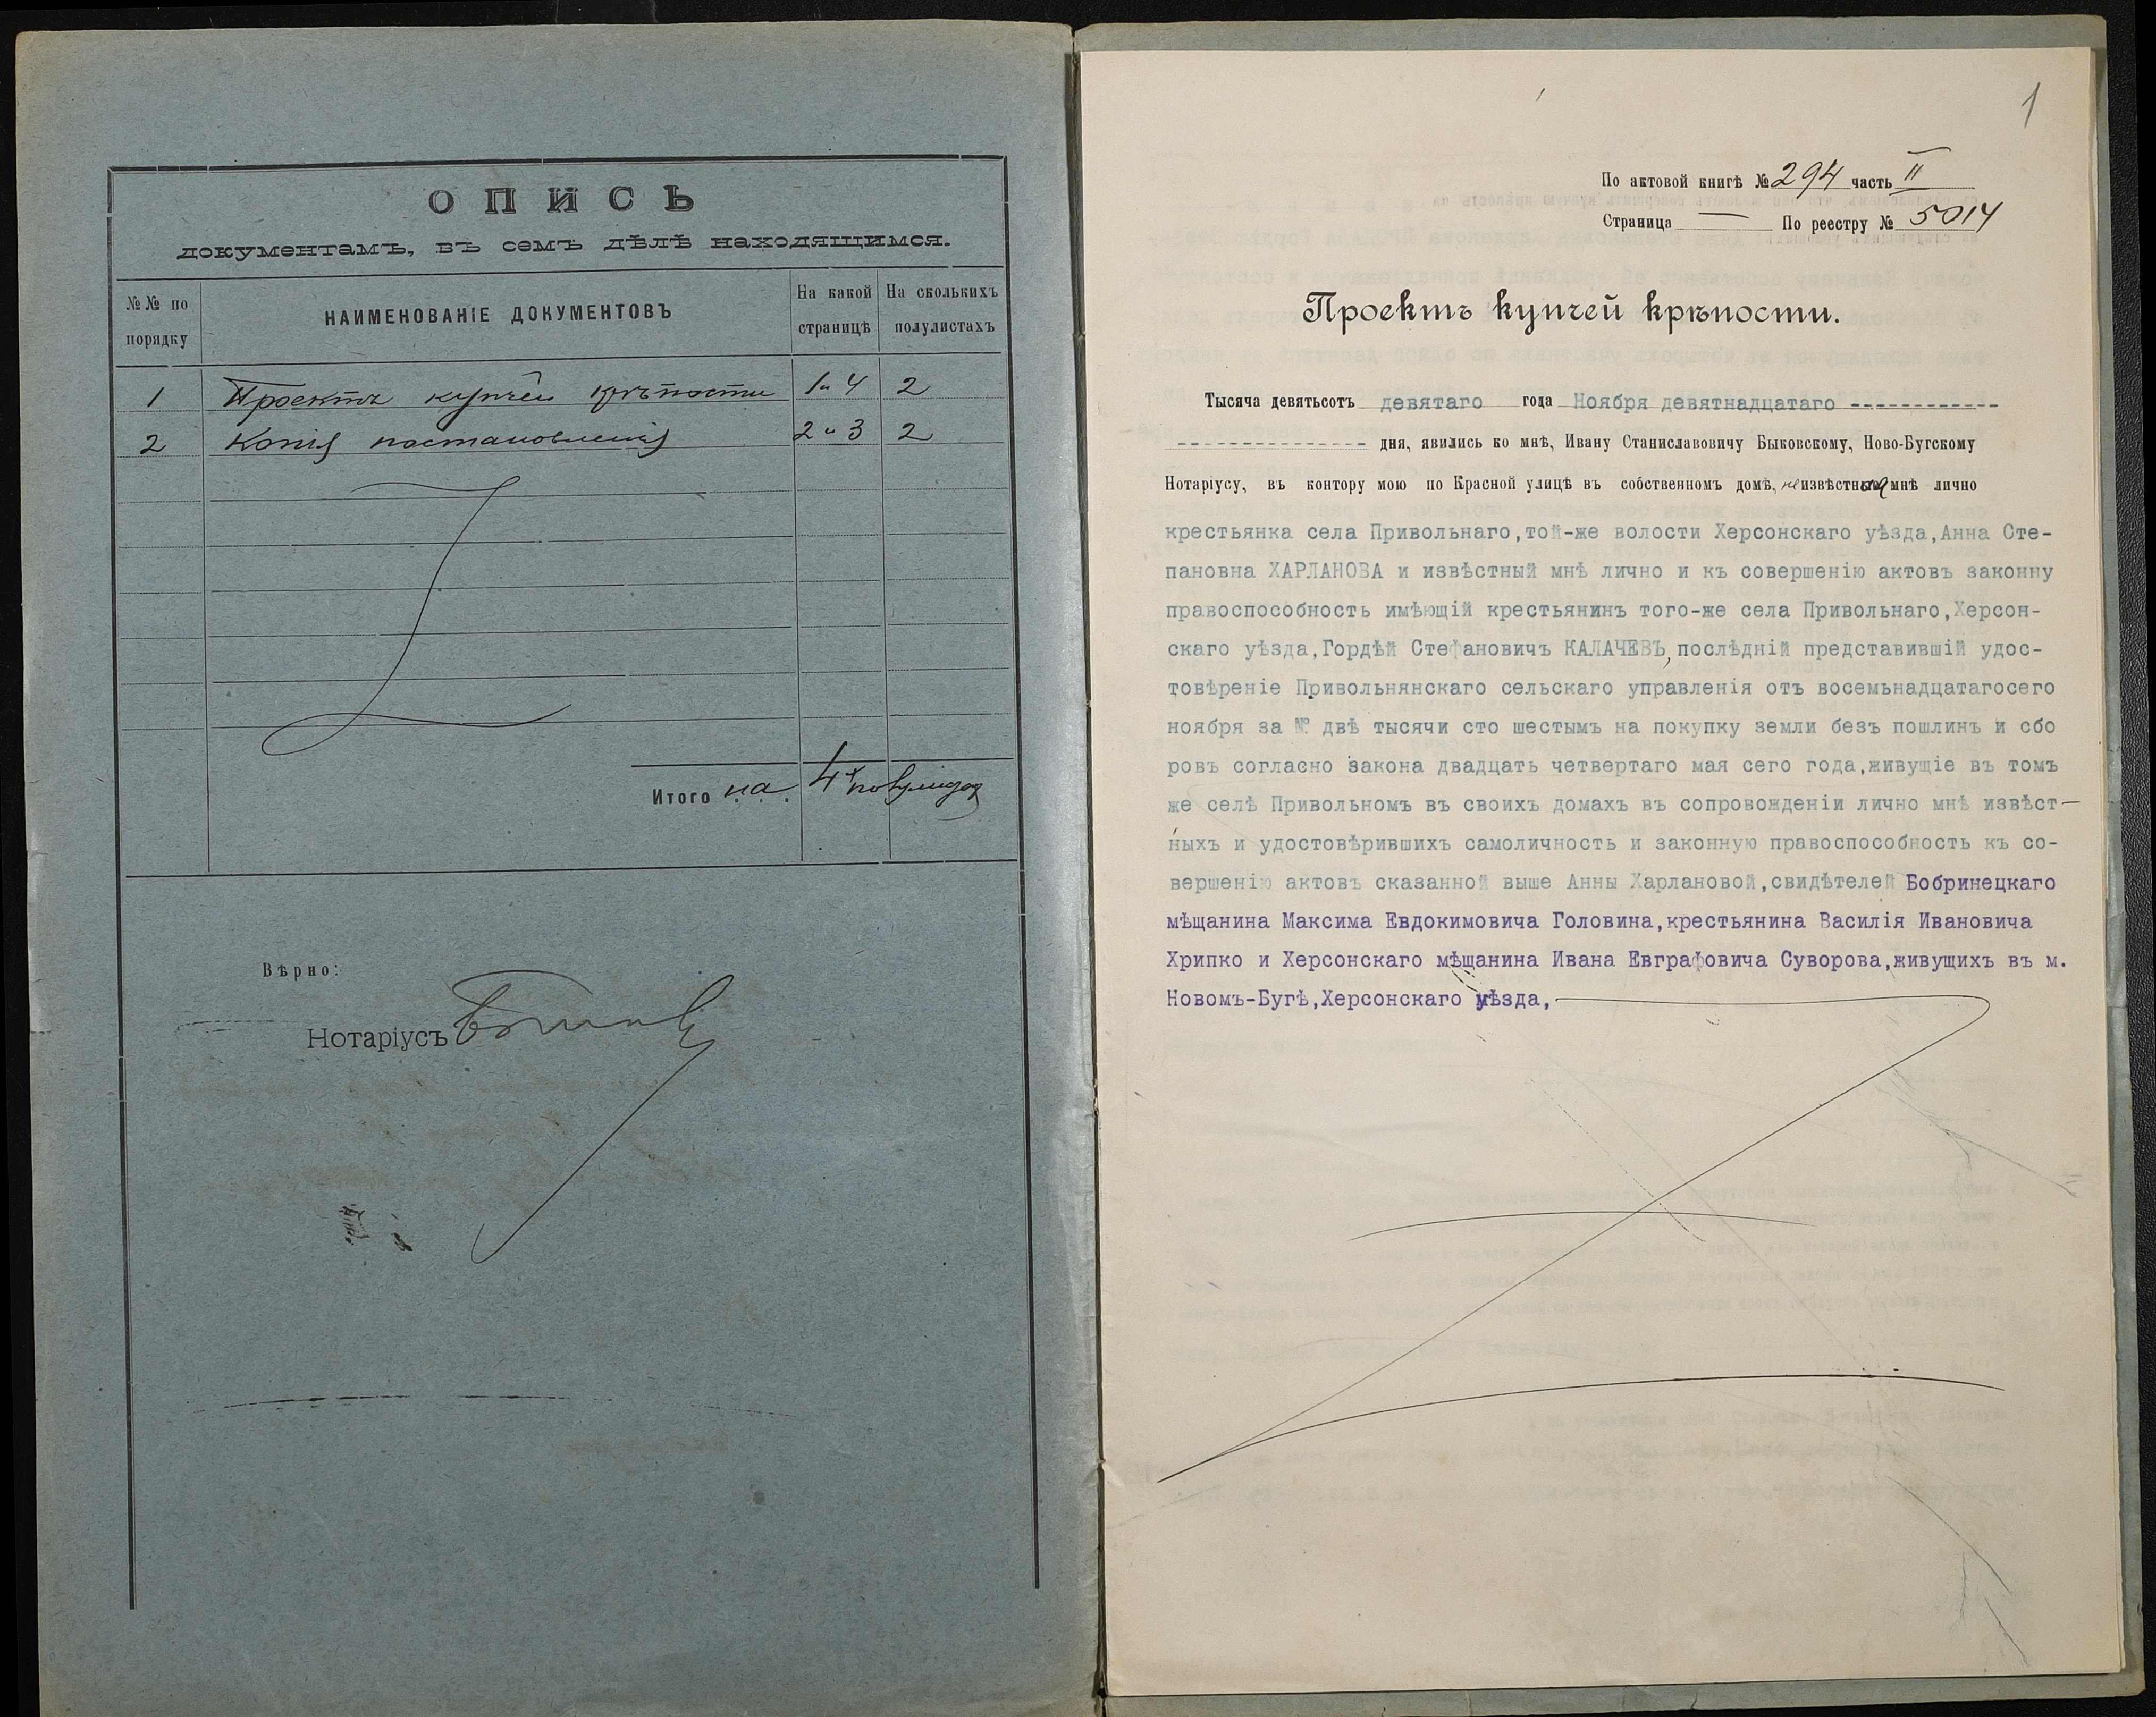 ОПИСЬ
документамъ, въ семъ дѣлѣ находящимся.
№№ по порядку
НАИМЕНОВАНІЕ ДОКУМЕНТОВЪ
На какой страницѣ
На сколькихъ полулистахъ
1 Проектъ купчей крѣпости 1 и 4 2
2 Копія постановленія 2 и 3 2
Итого на 4х полулистах
Вѣрно:
Нотаріусъ
1
По актовой книгѣ № 294 часть II
Страница — По реестру № 5014
Проектъ купчей крѣпости.
Тысяча девятьсотъ девятаго года Ноября девятнадцатаго ------------
---------------- дня, явились ко мнѣ, Ивану Станиславовичу Быковскому, Ново-Бугскому
Нотаріусу, въ контору мою по Красной улицѣ въ собственномъ домѣ, неизвѣстная мнѣ лично
крестьянка села Привольнаго,той-же волости Херсонскаго уѣзда,Анна Сте-
пановна ХАРЛАНОВА и извѣстный мнѣ лично и къ совершенію актовъ законну
правоспособность имѣющій крестьянинъ того-же села Привольнаго,Херсон-
скаго уѣзда,Гордѣй Стефановичъ КАЛАЧЕВЪ,послѣдній представившій удос-
товѣреніе Привольнянскаго сельскаго управленія отъ восемьнадцатагосего
ноября за № двѣ тысячи сто шестымъ на покупку земли безъ пошлинъ и сбо
ровъ согласно закона двадцать четвертаго мая сего года,живущіе въ томъ
же селѣ Привольномъ въ своихъ домахъ въ сопровожденіи лично мнѣ извѣст-
ныхъ и удостовѣрившихъ самоличность и законную правоспособность къ со-
вершенію актовъ сказанной выше Анны Харлановой,свидѣтелей Бобринецкаго
мѣщанина Максима Евдокимовича Головина,крестьянина Василія Ивановича
Хрипко и Херсонскаго мѣщанина Ивана Евграфовича Суворова,живущихъ въ м.
Новомъ-Бугѣ,Херсонскаго уѣзда,